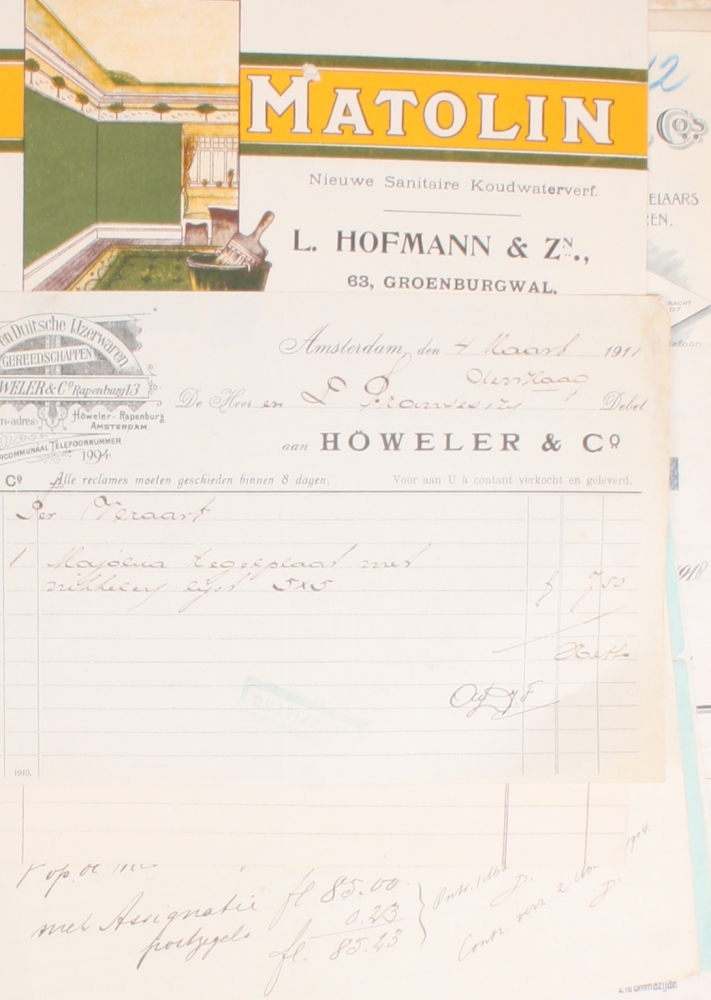 MATOLIN
Nieuwe Sanitaire Koudwaterverf.
L. HOFMANN & ZN.,
63, GROENBURGWAL,
Cos
ELAARS
EN.
en Duitsche IJzerwaren
GEREEDSCHAPPEN
WELER & Co Rapenburg 13
m-adres: Höweler-Rapenburg
AMSTERDAM.
RCOMMUNAAL TELEFOONNUMMER
1994
Amsterdam, den 4 Maart 1911
De Heer en
Debet
aan HÖWELER & Co
Co Alle reclames moeten geschieden binnen 8 dagen. Voor aan U à contant verkocht en geleverd.
Per
1 Majolica tegelplaat met
nikkelen lijst 5x5 f 7,50
Netto
1910.
1918
met Assignatie fl 85.00
postzegels 0.23
fl. 85.23